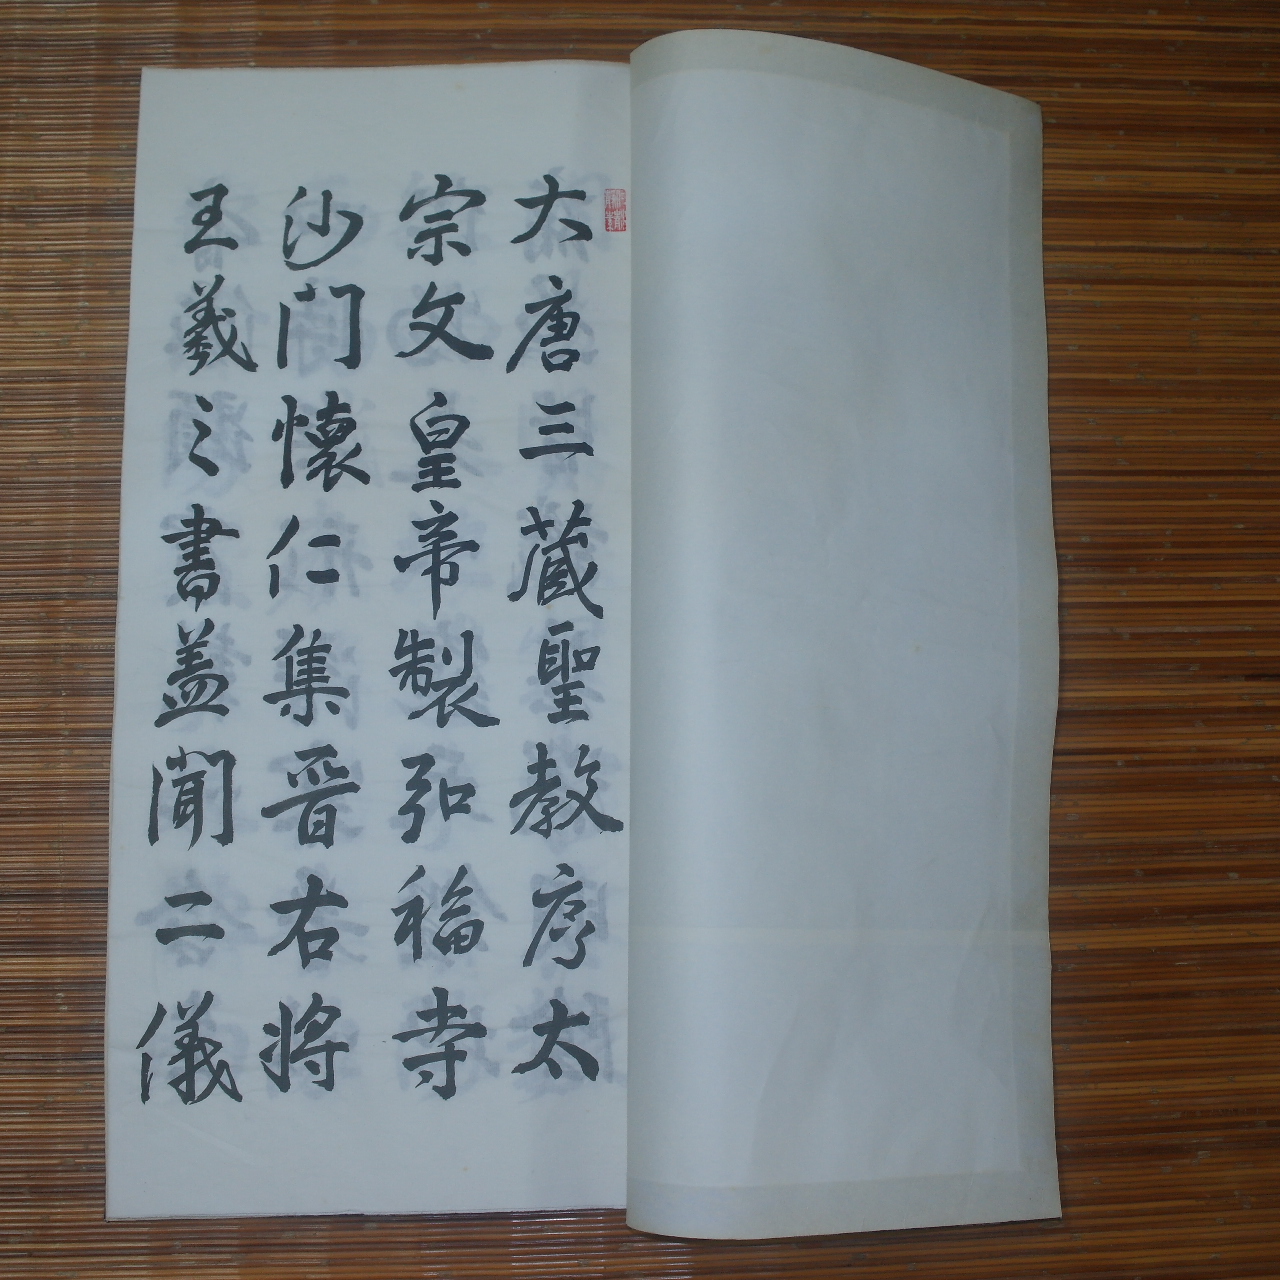 大唐三蔵聖教序太
宗文皇帝製弘福寺
沙門懐仁集晋右将
王羲之書蓋聞二儀